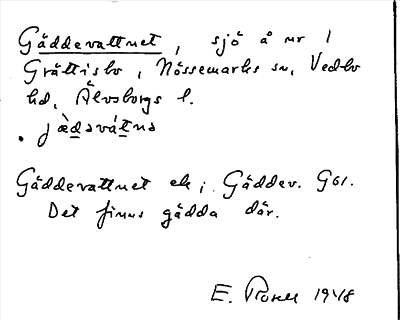 Gäddevattnet, sjö å nr 1
Grättisbo, Nössemarks sn, Vedbo
hd, Älvsborgs l.
. jæ̀davátnə
Gäddevattnet ek; Gäddev. G61.
Det finns gädda där.
E. 1948